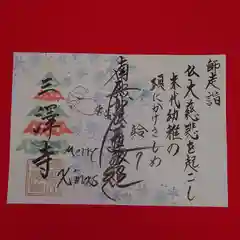 師走詣
仏大慈悲を起こし
末代幼稚の
頚にかけさしめ
給う
南無妙法蓮華経
三澤寺
Merry
X'mas